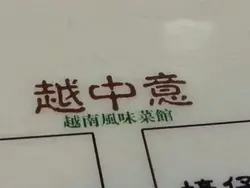 越中意
越南風味菜館